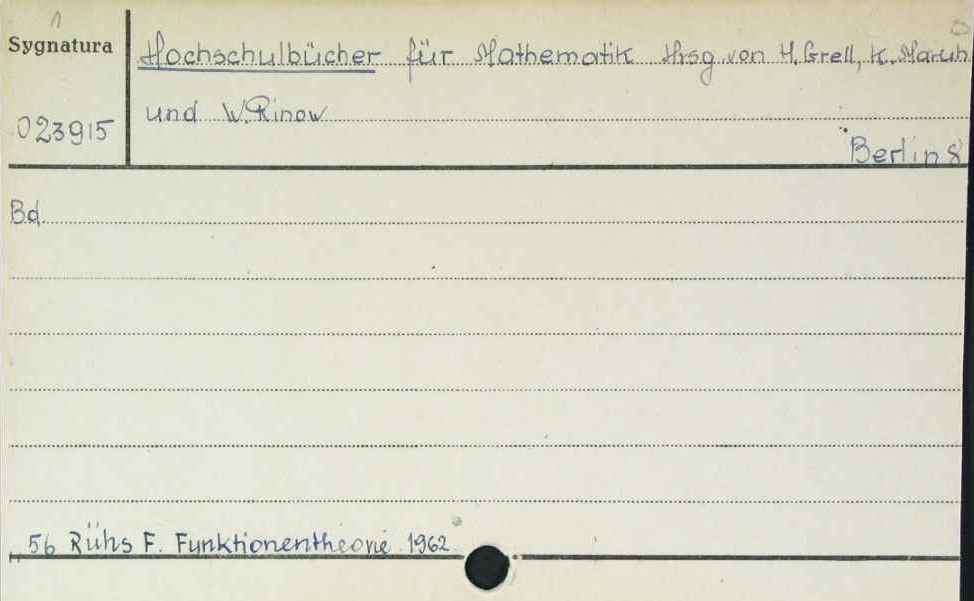 1
Sygnatura
Hochschulbücher für Mathematik Hrsg. von H. Grell, K. Maruhn
und W. Rinow
023915
Berlin 8°
Bd.
56 Rühs F. Funktionentheorie 1962